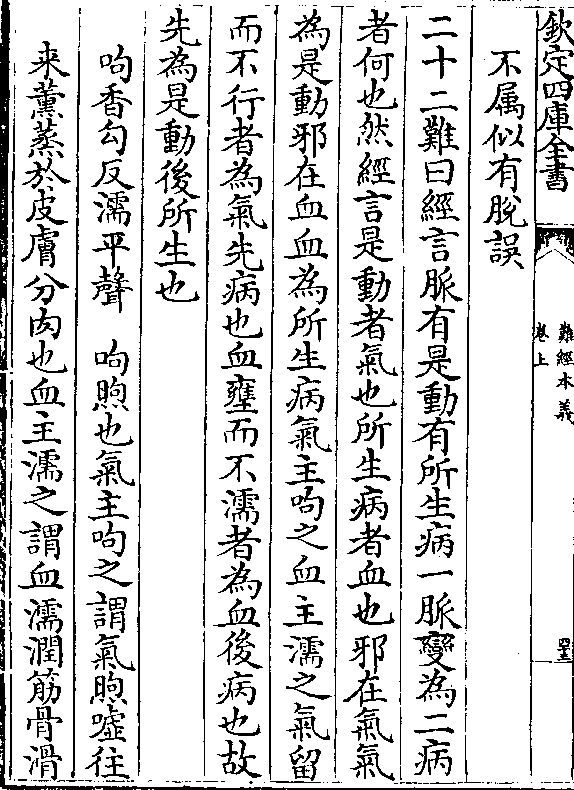 欽定四庫全書
難經本義
卷上
不属似有脫誤
二十二難曰經言脈有是動有所生病一脈變為二病
者何也然經言是動者氣也所生病者血也邪在氣氣
為是動邪在血血為所生病氣主呴之血主濡之氣留
而不行者為氣先病也血壅而不濡者為血後病也故
先為是動後所生也
呴香勾反濡平聲　呴煦也氣主呴之謂氣煦嘘往
来薰蒸於皮膚分肉也血主濡之謂血濡潤筋骨滑